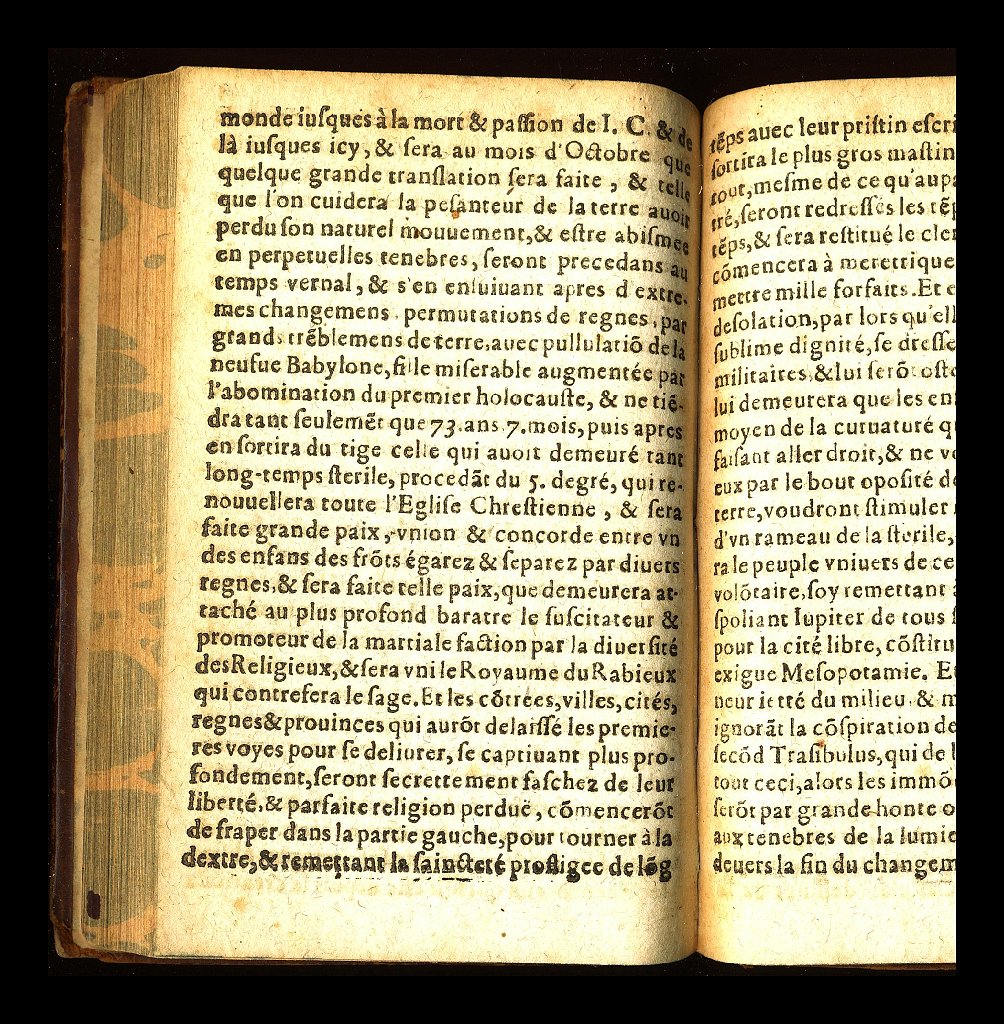 monde iuſques à la mort & paſſion de I. C. & de
là iuſques icy, & ſera au mois d'Octobre que
quelque grande tranſlation ſera faite, & telle
que l'on cuidera la peſanteur de la terre auoir
perdu ſon naturel mouuement, & eſtre abiſmee
en perpetuelles tenebres, ſeront precedans au
temps vernal, & s'en enſuiuant apres d'extre-
mes changemens, permutations de regnes, par
grands trẽblemens de terre, auec pullulatiõ de la
neufue Babylone, fille miſerable augmentée par
l'abomination du premier holocauſte, & ne tiẽ-
dra tant ſeulemẽt que 73. ans 7. mois, puis apres
en ſortira du tige celle qui auoit demeuré tant
long-temps ſterile, procedãt du 5. degré, qui re-
nouuellera toute l'Egliſe Chreſtienne, & ſera
faite grande paix, vnion & concorde entre vn
des enfans des frõts égarez & ſeparez par diuers
regnes, & ſera faite telle paix, que demeurera at-
taché au plus profond baratre le ſuſcitateur &
promoteur de la martiale faction par la diuerſité
des Religieux, & ſera vni le Royaume du Rabieux
qui contrefera le ſage. Et les cõtrées, villes, cités,
regnes & prouinces qui aurõt delaiſſé les premie-
res voyes pour ſe deliurer, ſe captiuant plus pro-
fondement, ſeront ſecrettement faſchez de leur
liberté, & parfaite religion perduë, cõmencerõt
de fraper dans la partie gauche, pour tourner à la
dextre, & remettant la ſaincteté profligee de lõg
tẽps auec leur priſtin eſcri
ſortira le plus gros maſtin
tout, meſme de ce qu'aupa
tré, ſeront redreſſés les tẽp
tẽps, & ſera reſtitué le cler
cõmencera à meretrique
mettre mille forfaits. Et e
deſolation, par lors qu'ell
ſublime dignité, ſe dreſſe
militaires, & lui ſerõt oſte
lui demeurera que les en
moyen de la curuaturé q
faiſant aller droit, & ne v
eux par le bout opoſité d
terre, voudront ſtimuler
d'vn rameau de la ſterile,
ra le peuple vniuers de ce
volõtaire, ſoy remettant
ſpoliant Iupiter de tous
pour la cité libre, cõſtitu
exigue Meſopotamie. Et
neur ietté du milieu, & m
ignorãt la cõſpiration de
ſecõd Traſibulus, qui de l
tout ceci, alors les immõ
ſerõt par grande honte o
aux tenebres de la lumie
deuers la fin du changem